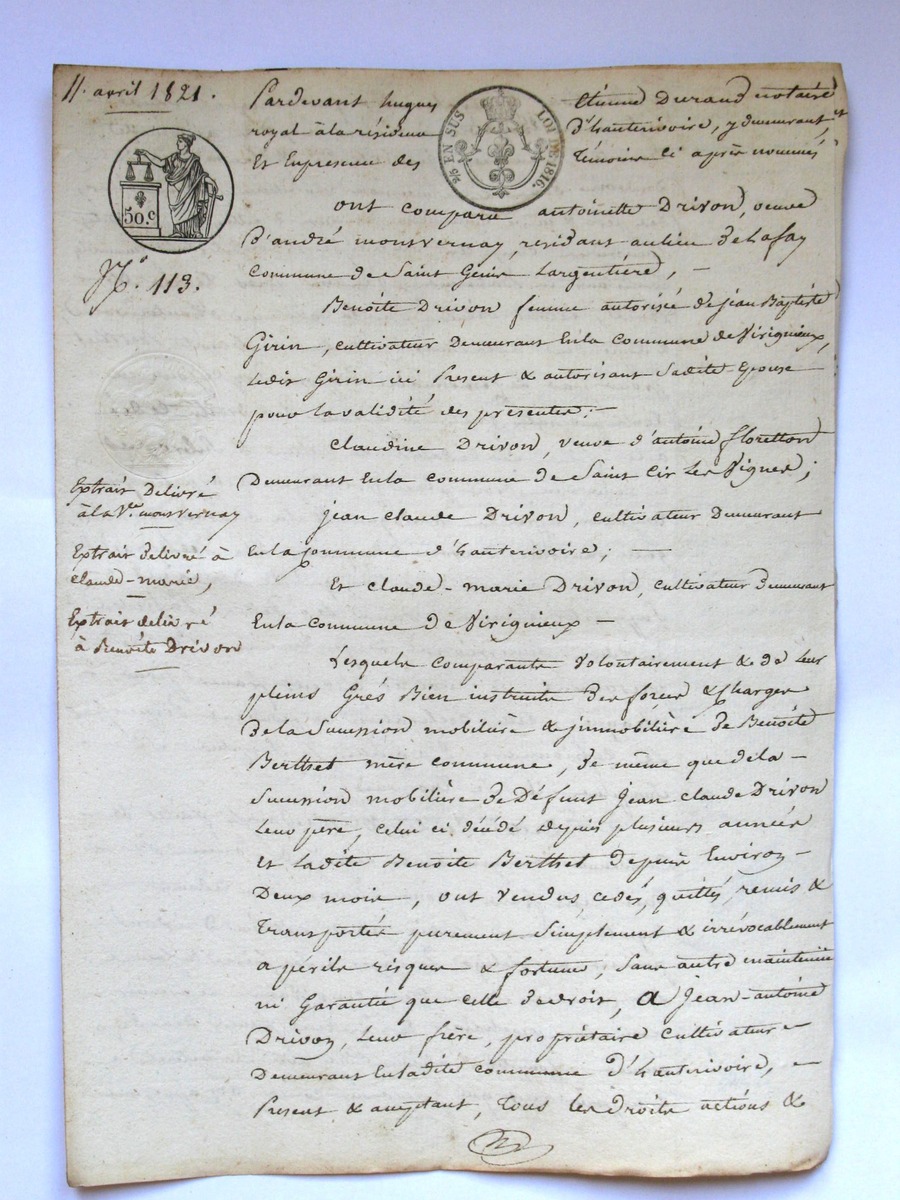 11. avril 1821.
50.c
N.° 113.
Extrait Delivré
à la Ve. monvernay
Extrait delivré à
claude-marie,
Extrait delivré
à Benoite Drivon
EN SUS LOI DE 1816.
Pardevant hugues Etienne Durand notaire
royal à la résidence d'hauterivoire, y demeurant et
Et En presence des Témoins ci après nommés
ont comparu antoinette Drivon, veuve
D'andré monsvernay, residant au lieu de Lafay
Commune de Saint Genis Largentière, -
Benoite Drivon femme autorisée de jean Baptiste
Girin, cultivateur Demeurant En la Commune de Virignieux,
Ledit Girin ici Present & autorisant Sadite Epouse
pour la validité des présentes; -
Claudine Drivon, veuve d'antoine floretton
Demeurant En la commune de Saint Cir Les Vignes;
jean claude Drivon, cultivateur Demeurant
En la Commune d'hauterivoire; -
Et claude-marie Drivon, cultivateur demeurant
En la Commune de Virignieux -
Lesquels comparants volontairement & de leur
pleins Grés Bien instruits des forces & Charges
De la Succession mobilière & jmmobilière de Benoite
Berthet mère commune, de même que de la -
Succession mobilière de Défunt Jean Claude Drivon
Leur père, celui ci décédé depuis plusieurs années
Et Ladite Benoite Berthet depuis Environ -
Deux mois, ont vendus, cedés, quittés, remis &
Transportés purement Simplement & irrévocablement
a périls risques & fortune, Sans autre maintenue
ni Garantie que celle de droit, a Jean-antoine
Drivon, Leur frère, propriétaire cultivateur -
Demeurant En Ladite commune d'hauterivoire, -
Present & acceptant, Tous les droits actions &